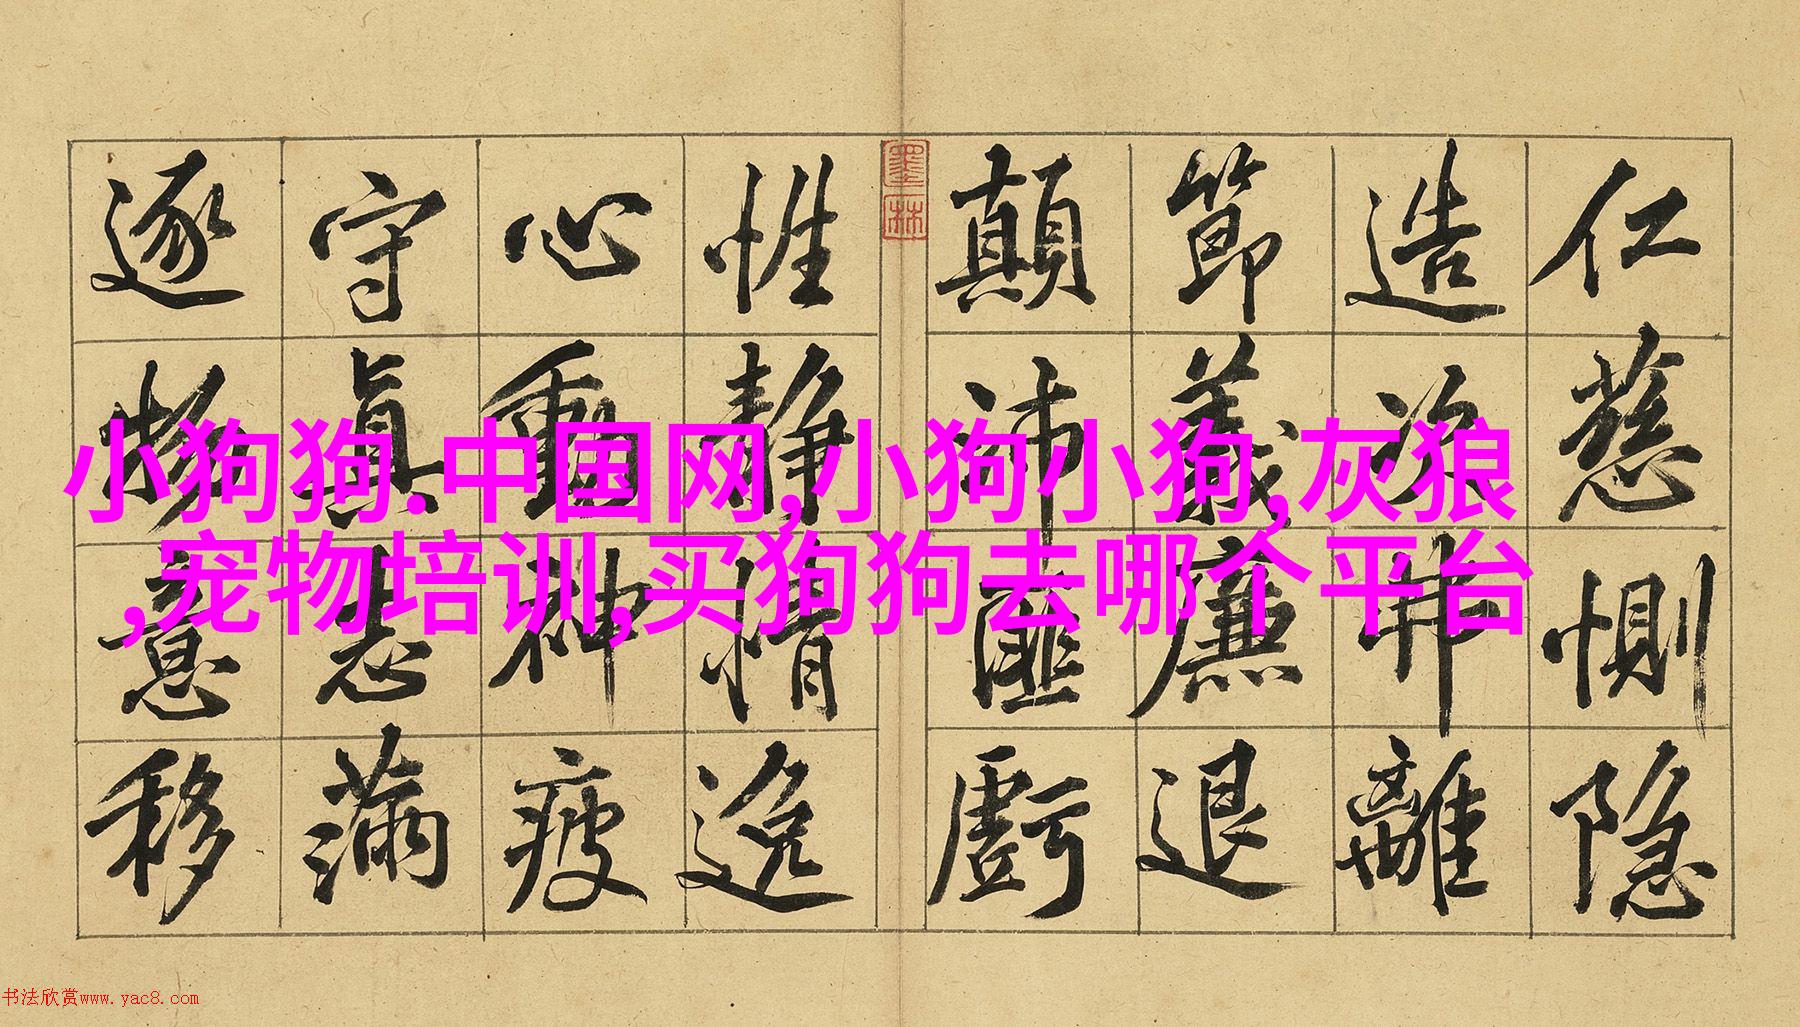 仁慈惻隐
造次弗離
節義廉退
顛沛匪虧
性静情逸
心動神疲
守真志满
逐物意移
墨林
小狗狗.中国网,小狗小狗,灰狼
,宠物培训,买狗狗去哪个平台
书法欣赏www.yac8.com